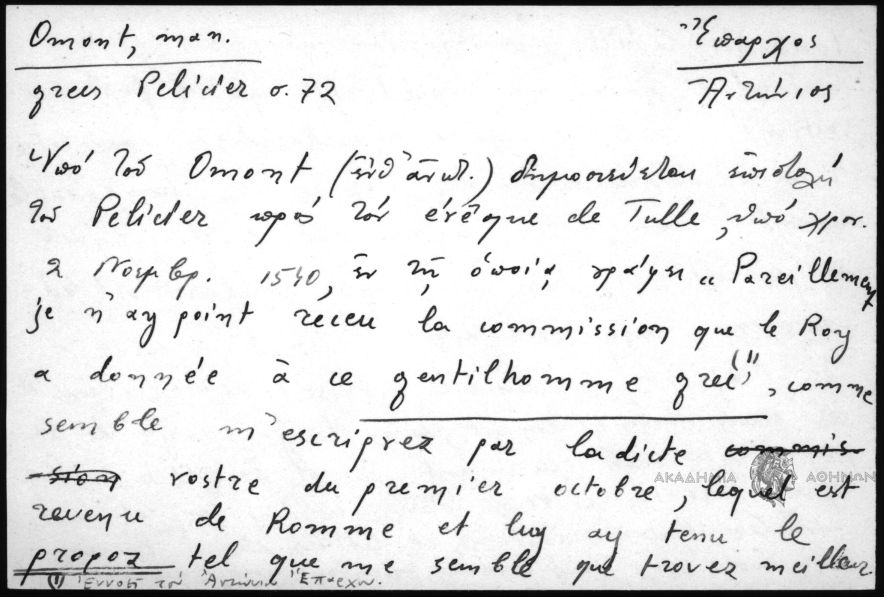 Omont, man.
grecs Pelicier σ. 72
Ἔπαρχος
Ἀντώνιος
Ὑπό τοῦ Omont (ἐνθ' ἀνωτ.) δημοσιεύεται ἐπιστολή
τοῦ Pelicier πρός τόν évêque de Tulle, ὑπό χρον.
2 Νοεμβρ. 1540, ἐν τῇ ὁποίᾳ γράφει „Pareillement
je n'ay point receu la commission que le Roy
a donnée à ce gentilhomme grec(1), comme
semble m'escripvez par ladicte commis-
sion vostre du premier octobre, lequel est
revenu de Romme et luy ay tenu le
propoz tel que me semble que trovez meilleur.
(1) Ἐννοεῖ τόν Ἀντώνιο Ἔπαρχον.
ΑΚΑΔΗΜΙΑ ΑΘΗΝΩΝ